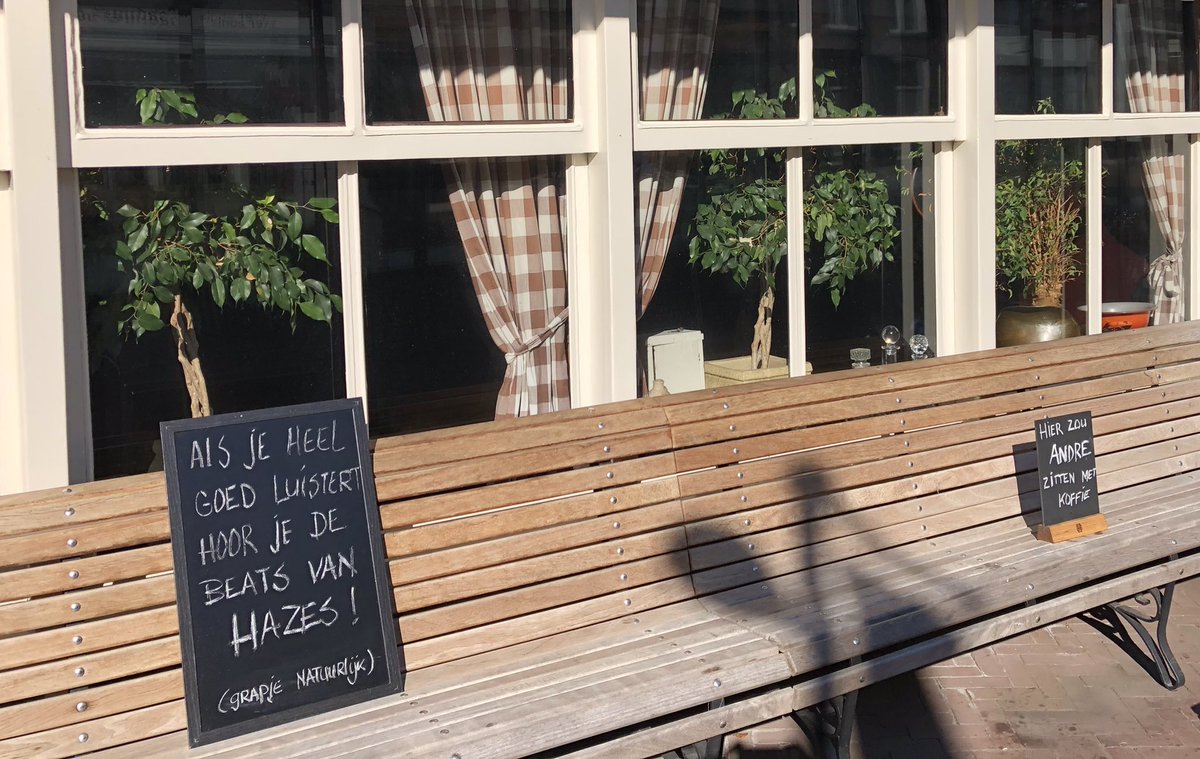 ALS JE HEEL
GOED LUISTERT
HOOR JE DE
BEATS VAN
HAZES!
(GRAPJE NATUURLIJK)
HIER ZOU
ANDRE
ZITTEN MET
KOFFIE